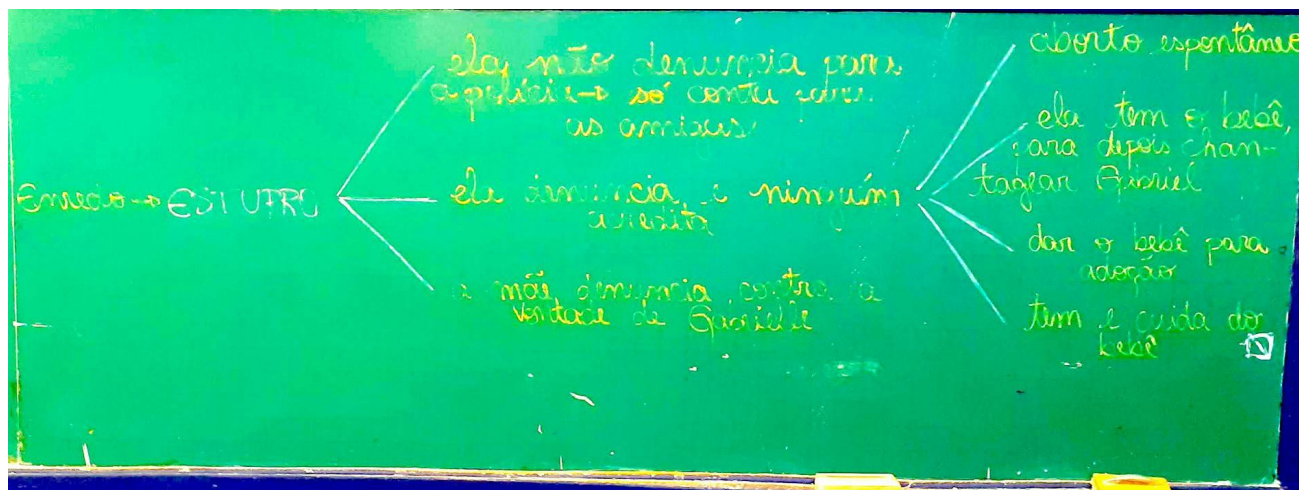 Enredo → ESTUPRO
ela não denuncia para
a polícia → só conta para
as amigas
ela denuncia, e ninguém
acredita
a mãe denuncia contra a
vontade de Gabrielle
aborto espontâneo
ela tem o bebê,
para depois chan-
tagear Gabriel
dar o bebê para
adoção
tem e cuida do
bebê